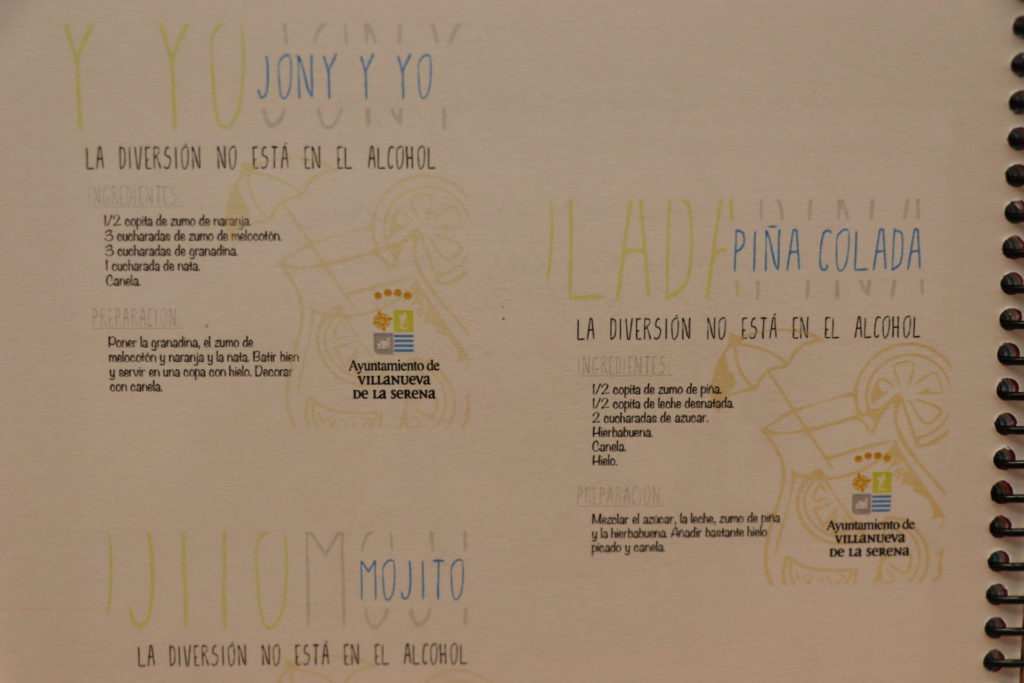 Y YO JONY
JONY Y YO
LA DIVERSIÓN NO ESTÁ EN EL ALCOHOL
INGREDIENTES:
1/2 copita de zumo de naranja.
3 cucharadas de zumo de melocotón.
3 cucharadas de granadina.
1 cucharada de nata.
Canela.
PREPARACIÓN:
Poner la granadina, el zumo de
melocotón y naranja y la nata. Batir bien
y servir en una copa con hielo. Decorar
con canela.
Ayuntamiento de
VILLANUEVA
DE LA SERENA
LADA PIÑA
PIÑA COLADA
LA DIVERSIÓN NO ESTÁ EN EL ALCOHOL
INGREDIENTES:
1/2 copita de zumo de piña.
1/2 copita de leche desnatada.
2 cucharadas de azucar.
Hierbabuena.
Canela.
Hielo.
PREPARACIÓN:
Mezclar el azúcar, la leche, zumo de piña
y la hierbabuena. Añadir bastante hielo
picado y canela.
Ayuntamiento de
VILLANUEVA
DE LA SERENA
MOJITO
LA DIVERSIÓN NO ESTÁ EN EL ALCOHOL